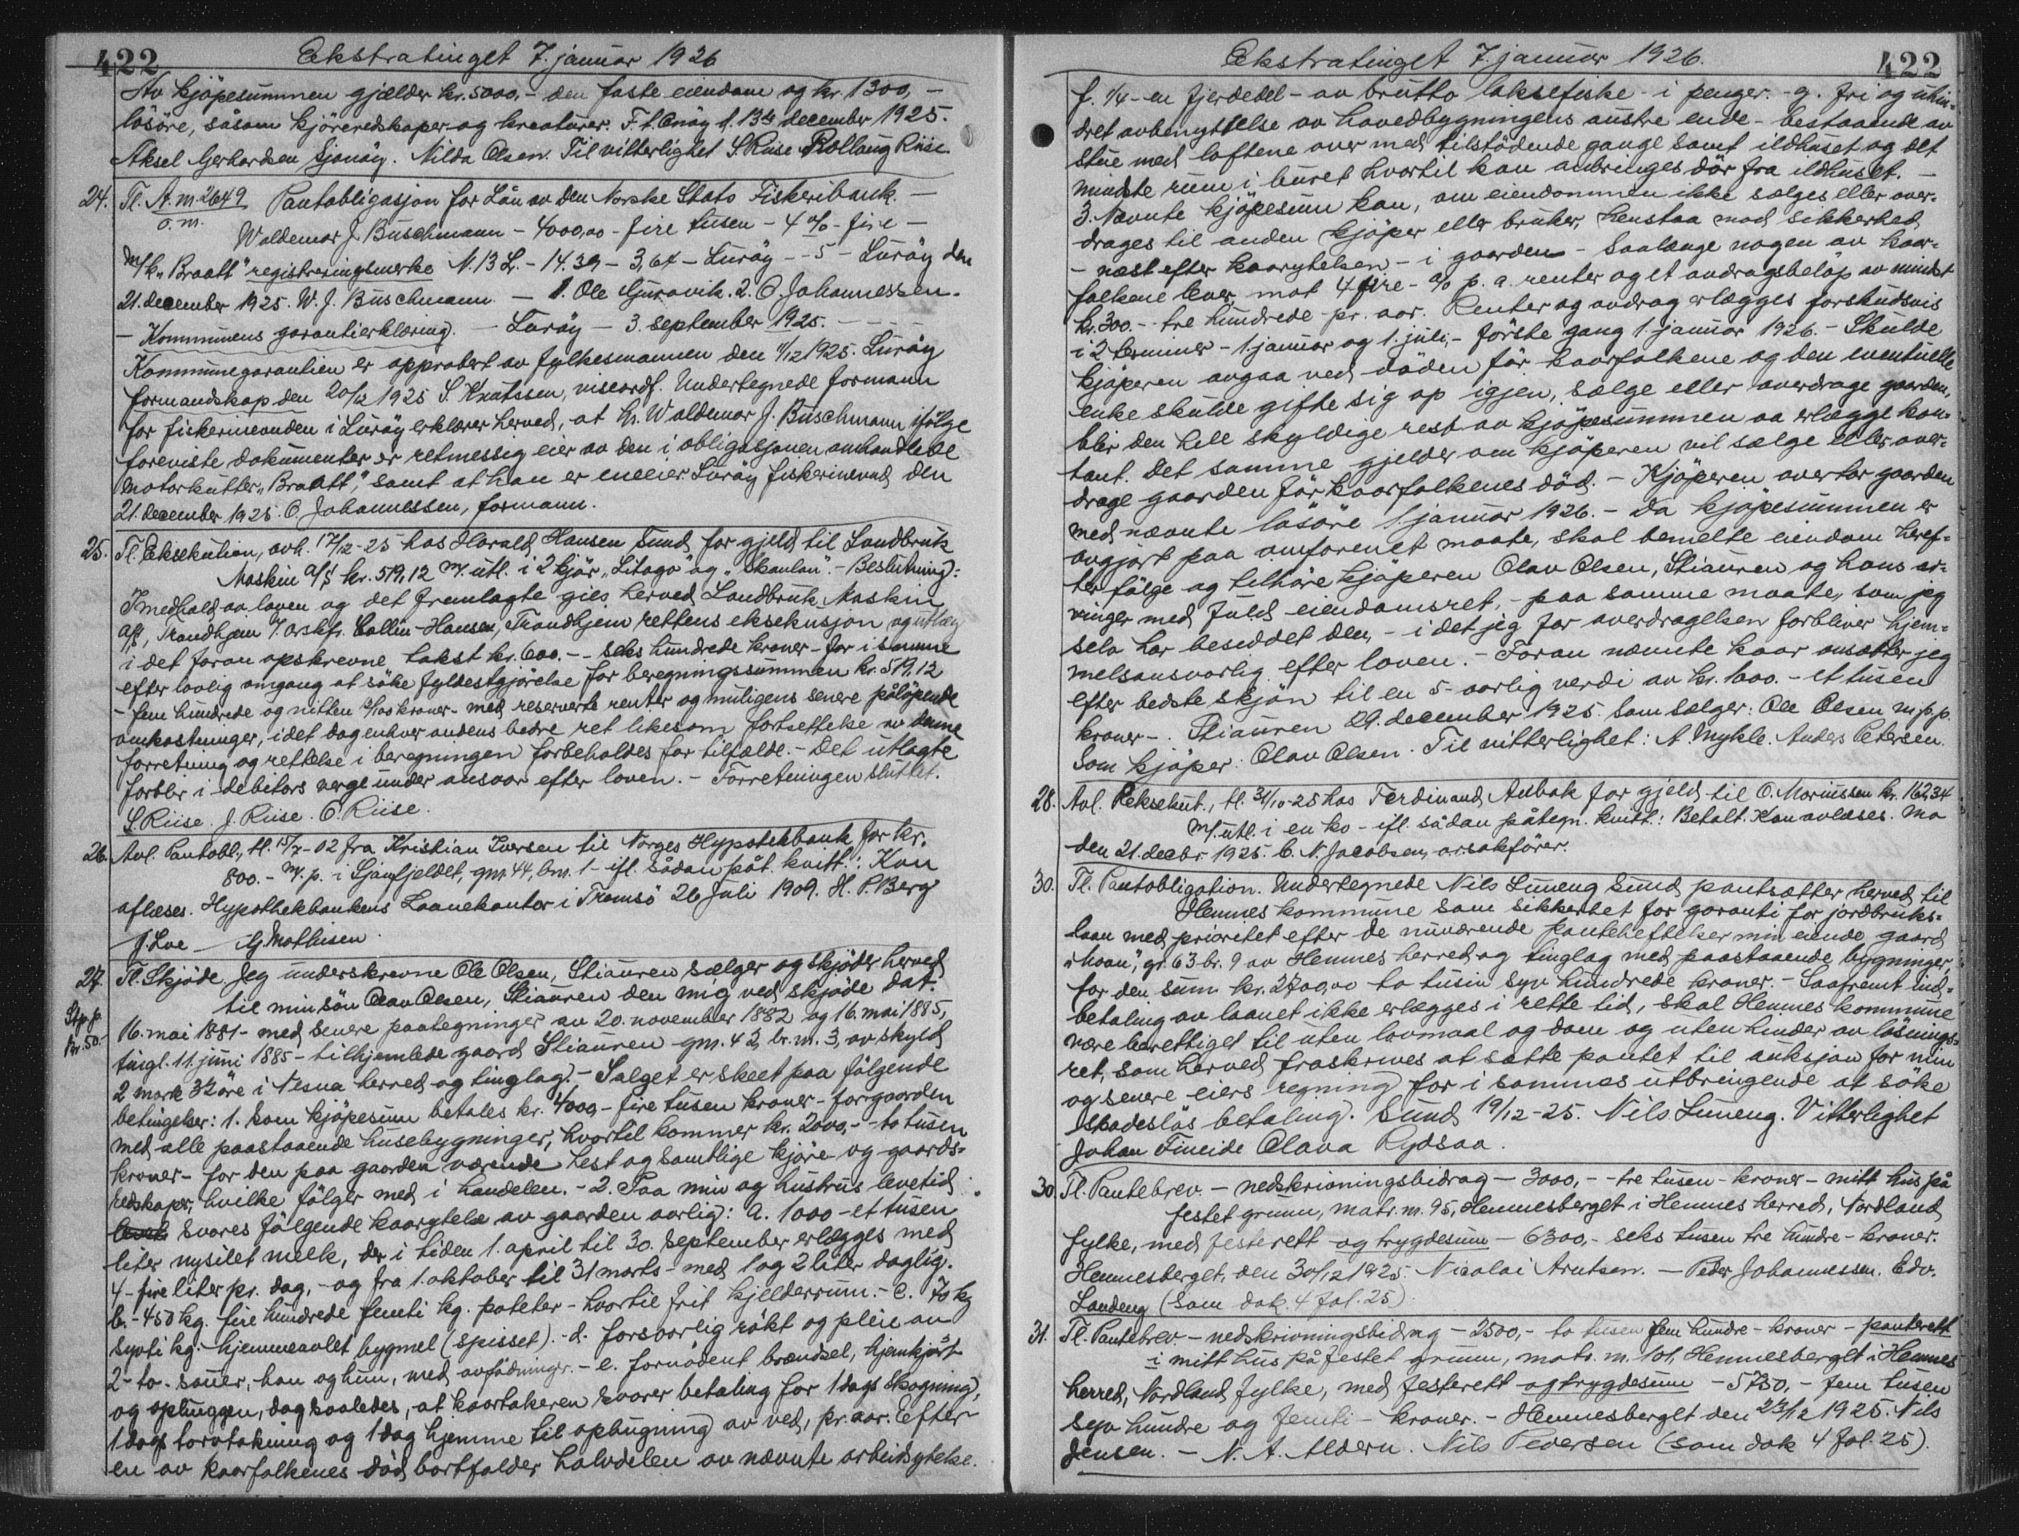 422
Ekstratinget 7. januar 1926
Av kjöpesummen gjælder kr. 5000,- den faste eiendom og kr 1300,-
lösöre, såsom kjöreredskaper og kreaturer. F. t. Onöy d. 13de december 1925.
Aksel Gerhardsen Sjonöy. Nilda Olsen. Til vitterlighet S. Riise Rollaug Riise
24. Tl. A.m. 2649 Pantobligasjon for Lån av den Norske Stats Fiskeribank.-
o.m.
Waldemar J. Buschmann - 4000,00 - fire tusen - 4 % - fire -
m/k „Braatt" registreringsmerke N. 13 L. - 14.39 - 3,64 - Luröy - - 5 - Luröy den
21. december 1925. W. J. Buschmann - 1. Ole Gurovik. 2. O. Johannessen.
- Kommunens garantierklæring. - Luröy - 3. september 1925.
Kommunegarantien er approbert av fylkesmannen den 11/12 1925. Luröy
formandskap den 20/12 1925 S. Knutssen, viseordf. Undertegnede formann
for fiskerinevnden i Luröy erklærer herved, at hr. Waldemar J. Buschmann ifölge
foreviste dokumenter er retmessig eier av den i obligasjonen omhandlede
motorkutter „Braatt," samt at han er eneeier. Luröy fiskerinevnd den
21. december 1925. O. Johannessen, formann.
25. Tl. Eksekution, avh. 17/12-25 hos Harald Hansen Sund for gjeld til Landbruk
Maskin a/s kr. 519,12 m/ utl. i 2 kjör „Litago" og „Skaulan". - Beslutning:
I medhald av loven og det fremlagte gies herved Landbruk Maskin
A/S, Trondhjem v/ orskfr. Collin-Hansen, Trondhjem rettens eksekusjon og utlæg
i det foran opskrevne takst kr. 600.- - seks hundrede kroner - for i samme
efter lovlig omgang at söke fyldestgjörelse for beregningssummen kr. 519,12
- fem hundrede og nitten 12/100 kroner - med reserverte renter og muligens senere påløpende
omkostninger, idet dog enhver andens bedre ret likesom fortsettelse av denne
forretning og rettelse i beregningen forbeholdes for tilfælde. - Det utlagte
forblir i debitors verge under ansvar efter loven. - Forretningen sluttet.
S. Riise. J. Riise. O. Riise.
26. Avl. Pantobl., tl. 17/7-02 fra Kristian Iversen til Norges Hypotekbank for kr.
800.- m/ p. i Sjonfjeldet, gnr. 44, bnr. 1 - ifl. sådan påt. kvitt.: Kan
aflæses. Hypothekbankens Laanekontor i Tromsö 26 Juli 1909. H. P. Berg
J. Loe G Mathisen.
27. Tl. Skjöde. Jeg underskrevne Ole Olsen, Stiauren sælger og skjöder herved
til min sön Olav Olsen, Stiauren den mig ved skjöde dat.
Stp. f. kr. 50.- 16. mai 1881 - med senere paategninger av 20. november 1882 og 16. mai 1885,
tingl. 11. juni 1885 - tilhjemlede gaard Stiauren gnr. 42, br.nr. 3, av skyld
2 mark 32 öre i Nesna herred og tinglag. - Salget er skeet paa følgende
betingelser: 1. Som kjöpesum betales kr. 4000,- fire tusen kroner - for gaarden
med alle paastaaende husebygninger, hvortil kommer kr. 2000,- - to tusen
kroner - for den paa gaarden værende hest og samtlige kjöre og gaards-
redskaper, hvilke fölger med i handelen. - 2. Paa min og hustrus levetid
svares følgende kaarytelse av gaarden aarlig: a. 1000 - et tusen
liter nysilet melk, der i tiden 1. april til 30. september erlægges med
4 - fire liter pr. dag, - og fra 1. oktober til 31 marts - med 1 og 2 liter daglig.
b. - 450 kg. fire hundrede femti kg. poteter - hvortil frit kjelderrum. - c. 70 kg
sytti kg. hjemmeavlet bygmel (spisset). - d. forsvarlig røkt og pleie av
2 - to - sauer, han og hun, med avfödninger. - e. fornödent brændsel, hjemkjört
og ophuggen, dog saaledes, at kaartakeren svarer betaling for 1 dags skogning,
1 dags torvtakning og 1 dag hjemme til ophugning av ved, pr. aar. Efter
en av kaarfolkenes död bortfalder halvdelen av nævnte arbeidsytelse.
Ekstratinget 7. januar 1926.
422
f. 1/4 - en fjerdedel - av brutto laksefiske - i penger. - g. fri og uhin-
dret avbenyttelse av hovedbygningens austre ende - bestaaende av
stue med loftene over med tilstödende gange samt ildhuset og det
mindste rum i buret hvortil kan anbringes dör fra ildhuset. -
3. Nævnte kjöpesum kan, om eiendommen ikke sælges eller over-
drages til anden kjöper eller bruker, henstaa mod sikkerhet
- næst efter kaarytelsen - i gaarden - saalænge nogen av kaar-
folkene lever mot 4 fire - % p. a. renter og et avdragsbelöp av mindst
kr. 300.- - tre hundrede - pr. aar. Renter og avdrag erlægges forskudsvis
i 2 terminer - 1. januar og 1. juli, - förste gang 1. januar 1926. - Skulde
kjöperen avgaa ved döden för kaarfolkene og den eventuelle
enke skulde gifte sig op igjen, sælge eller overdrage gaarden,
blir den hele skyldige rest av kjöpesummen aa erlægge kon-
tant. Det samme gjelder om kjöperen vil sælge eller over-
drage gaarden för kaarfolkenes död. - Kjöperen overtar gaarden
med nævnte lösöre 1. januar 1926. - Da kjöpesummen er
avgjort paa omforenet maate, skal bemelte eiendom heref-
ter fölge og tilhöre kjöperen Olav Olsen, Stiauren og hans ar-
vinger med fuld eiendomsret, - paa samme maate, som jeg
selv har besiddet den, - i det jeg for overdragelsen forbliver hjem-
melsansvarlig efter loven. - Foran nævnte kaar ansætter jeg
efter bedste skjön til en 5-aarlig verdi av kr. 1000.- et tusen
kroner -. Stiauren 29. december 1925. Som sælger: Ole Olsen m.p.p.
Som kjöper: Olav Olsen. Til vitterlighet: A. Mykle. Anders Petersen.
28. Avl. Eksekut., tl. 31/10-25 hos Ferdinand Aubak for gjeld til O. Mariussen kr. 162,34
m/ utl. i en ko - ifl. sådan påtegn. kvitt.: Betalt. Kan avlæses. Mo
den 21. decbr. 1925. C. N. Jacobsen, orsakförer.
30. Tl. Pantobligation. Undertegnede Nils Luneng Sund pantsætter herved til
Hemnes kommune som sikkerhet for garanti for jordbruks-
laan med prioritet efter de nuværende pantehefteiser min eiende gaard
„Moan", gr. 63 br. 9 av Hemnes herred og tinglag med paastaaende bygninger,
for den sum kr. 2700,00 to tusin syv hundrede kroner. - Saafremt ind-
betaling av laanet ikke erlægges i rette tid, skal Hemnes kommune
være berettiget til uten lovmaal og dom og uten hinder av løsnings-
ret, som herved fraskrives at sætte pantet til auksjon for min
og senere eiers regning for i sammes utbringende at söke
skadeslös betaling. Sund 19/12-25. Nils Luneng. Vitterlighet
Johan Fineide Olava Rydsaa.
30. Tl. Pantebrev. - nedskrivningsbidrag - 3000,- - tre tusen - kroner - mitt hus på
festet grunn, matr. nr. 95, Hemnesberget i Hemnes herred, Nordland
fylke, med festerett og trygdesum - 6300,- seks tusen tre hundre - kroner.
Hemnesberget, den 30/12 1925. Nicolai Arntsen. - Peder Johannessen. Edv.
Landeng (som dok. 4 fol. 25)
31. Tl. Pantebrev - nedskrivningsbidrag - 2500,- to tusen fem hundre - kroner - panterett
i mitt hus på festet grunn, matr. nr. 101, Hemnesberget i Hemnes
herred, Nordland fylke, med festerett og trygdesum - 5750,- fem tusen
syv hundre og femti - kroner. - Hemnesberget den 23/12 1925. Nils
Jensen. - N. A. Aldern. Nils Pedersen (som dok 4 fol. 25).